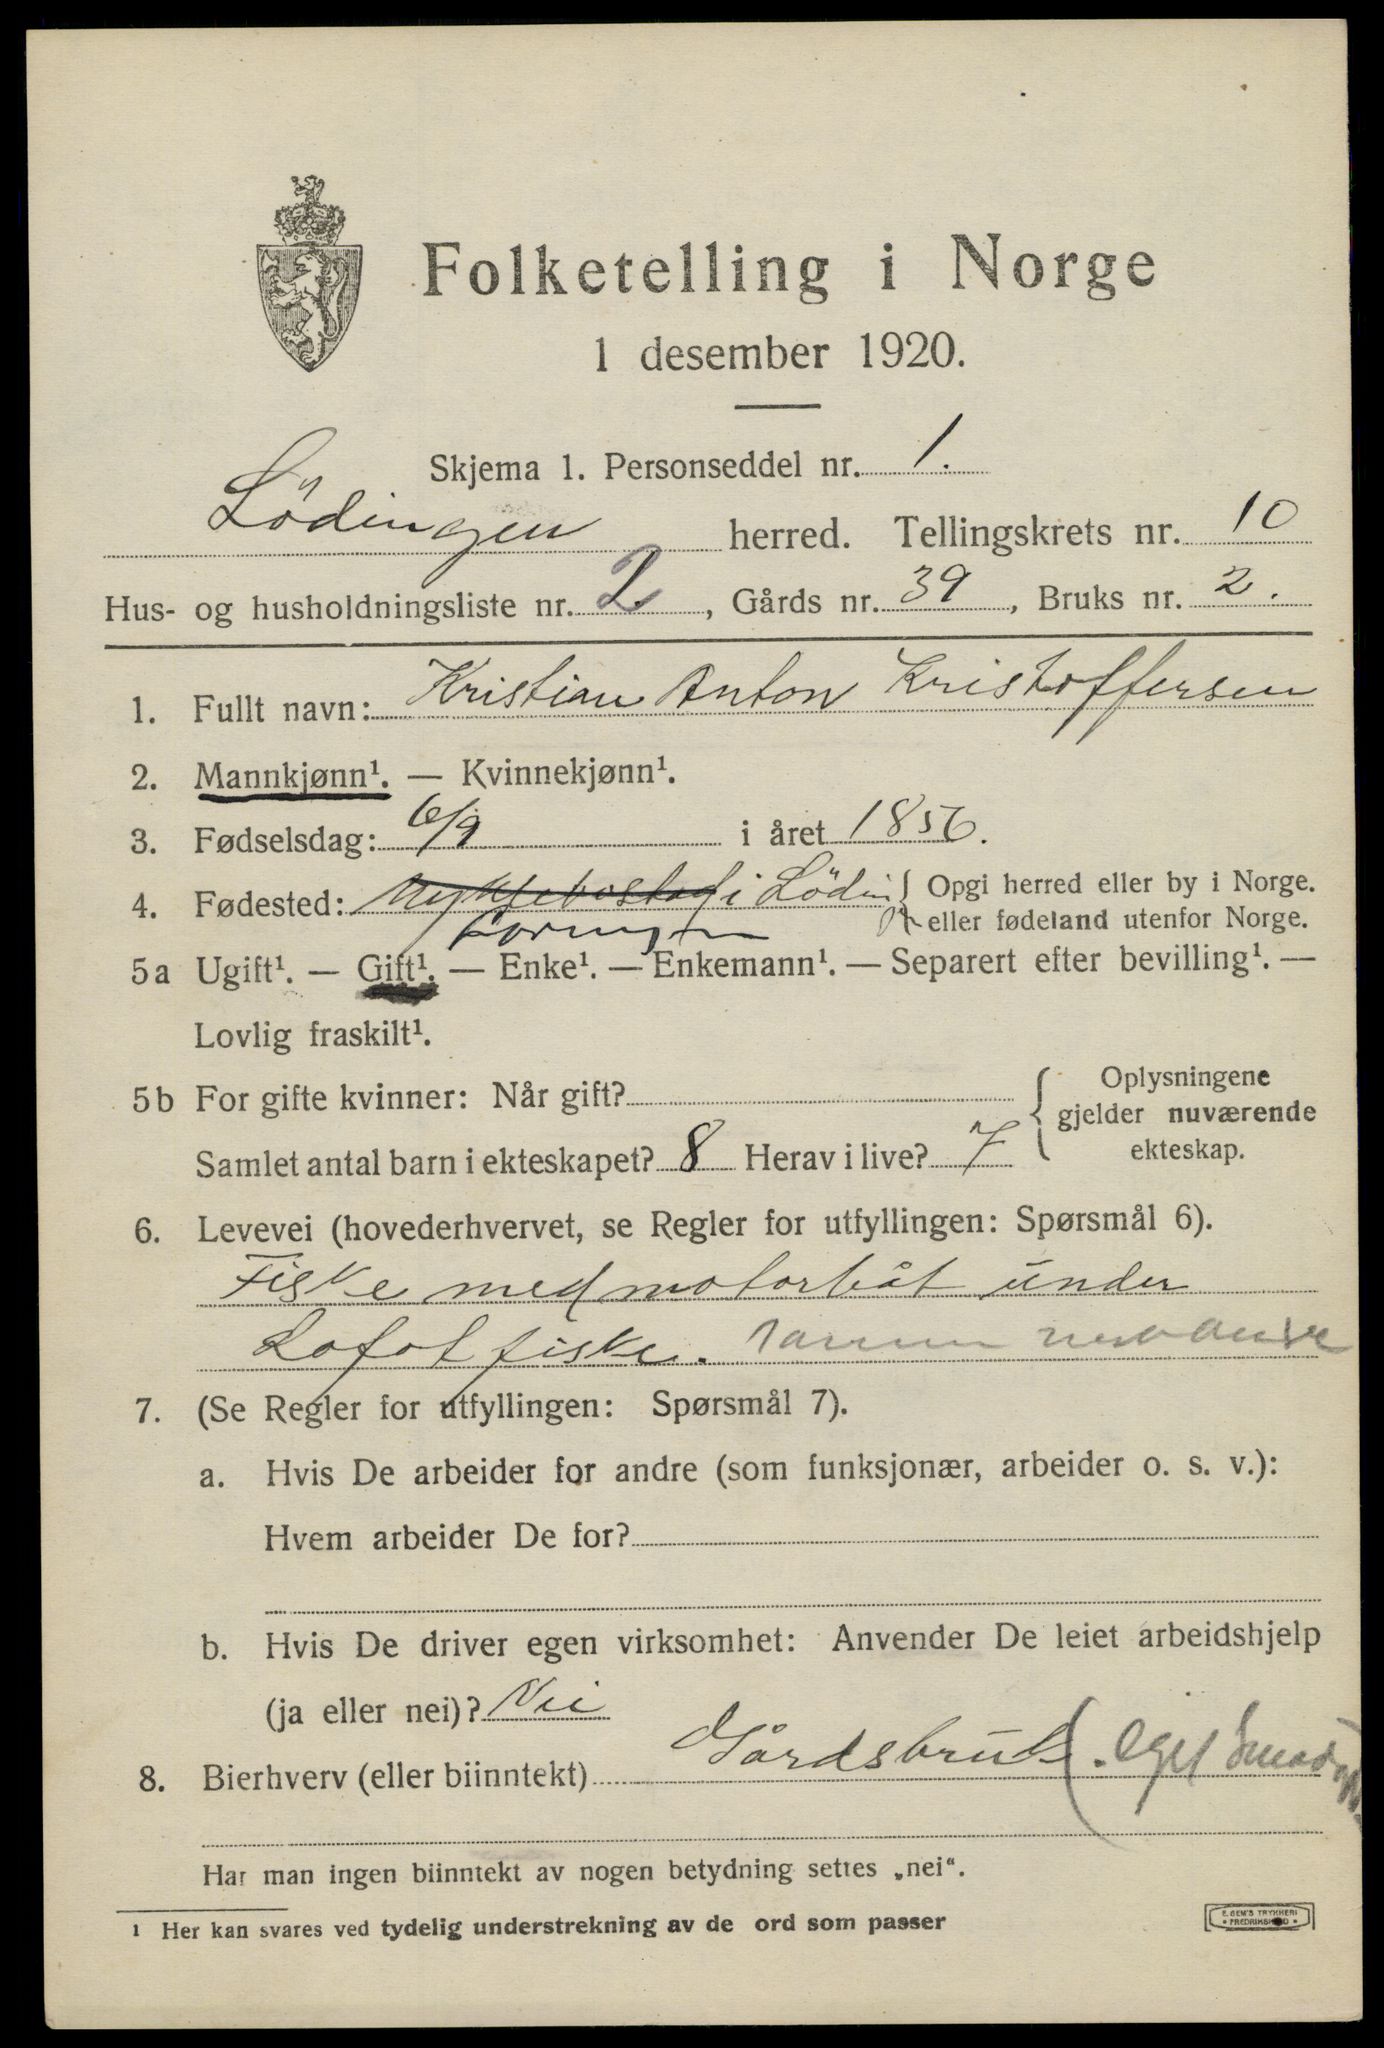 Folketelling i Norge
1 desember 1920.
Skjema 1. Personseddel nr. 1.
Lödingen herred. Tellingskrets nr. 10
Hus- og husholdningsliste nr. 2, Gårds nr. 39, Bruks nr. 2.
1. Fullt navn: Kristian Anton Kristoffersen
2. Mannkjønn¹. — Kvinnekjønn¹.
3. Fødselsdag: 6/9 i året 1856.
4. Fødested: i Lödin { Opgi herred eller by i Norge.
eller fødeland utenfor Norge.
5a Ugift¹. — Gift¹. — Enke¹. — Enkemann¹. — Separert efter bevilling¹. —
Lovlig fraskilt¹.
5b For gifte kvinner: Når gift? { Oplysningene
gjelder nuværende
ekteskap.
Samlet antal barn i ekteskapet? 8 Herav i live? 7
6. Levevei (hovederhvervet, se Regler for utfyllingen: Spørsmål 6).
Fiske med motorbåt under
Lofotfiske.
7. (Se Regler for utfyllingen: Spørsmål 7).
a. Hvis De arbeider for andre (som funksjonær, arbeider o. s. v.):
Hvem arbeider De for?
b. Hvis De driver egen virksomhet: Anvender De leiet arbeidshjelp
(ja eller nei)? Nei
8. Bierhverv (eller biinntekt) Gårdsbruk (. eget
Har man ingen biinntekt av nogen betydning settes „nei“.
1 Her kan svares ved tydelig understrekning av de ord som passer
E. SEM'S TRYKKERI
• FREDRIKSHALD •